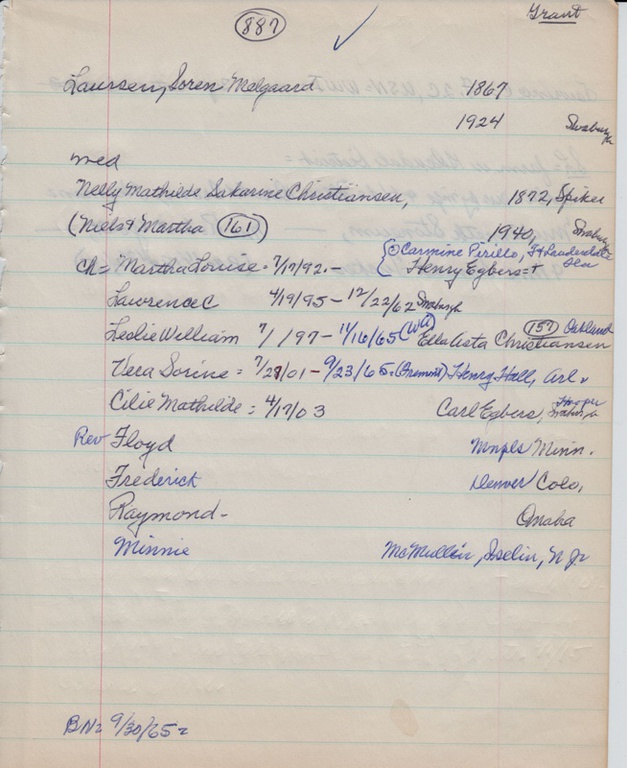 887
Grant
Laursen, Soren Melgaard 1867
1924 Snyburgh
med
Nelly Mathilde Sakarine Christiansen, 1872, Spiker
(Niels & Martha 161) 1940,
Ch = Martha Louise - 7/17/92 - Carmine Pirillo, Ft Lauderdale Fla
Henry Egbers = +
Lawrence C 4/19/95 - 12/22/62
Leslie William 7/1/97 - 11/16/65 (WA) Ella Asta Christiansen 157 Oakland
Vera Sorine = 7/27/01 - 9/23/65 - (Fremont) Henry Hall, Arl
Cilie Mathilde = 4/17/03 Carl Egbers, Hooper
Rev Floyd Mnpls Minn.
Frederick Denver Colo,
Raymond - Omaha
Minnie McMullin, Iselin, N Jr
BN = 9/30/65 =